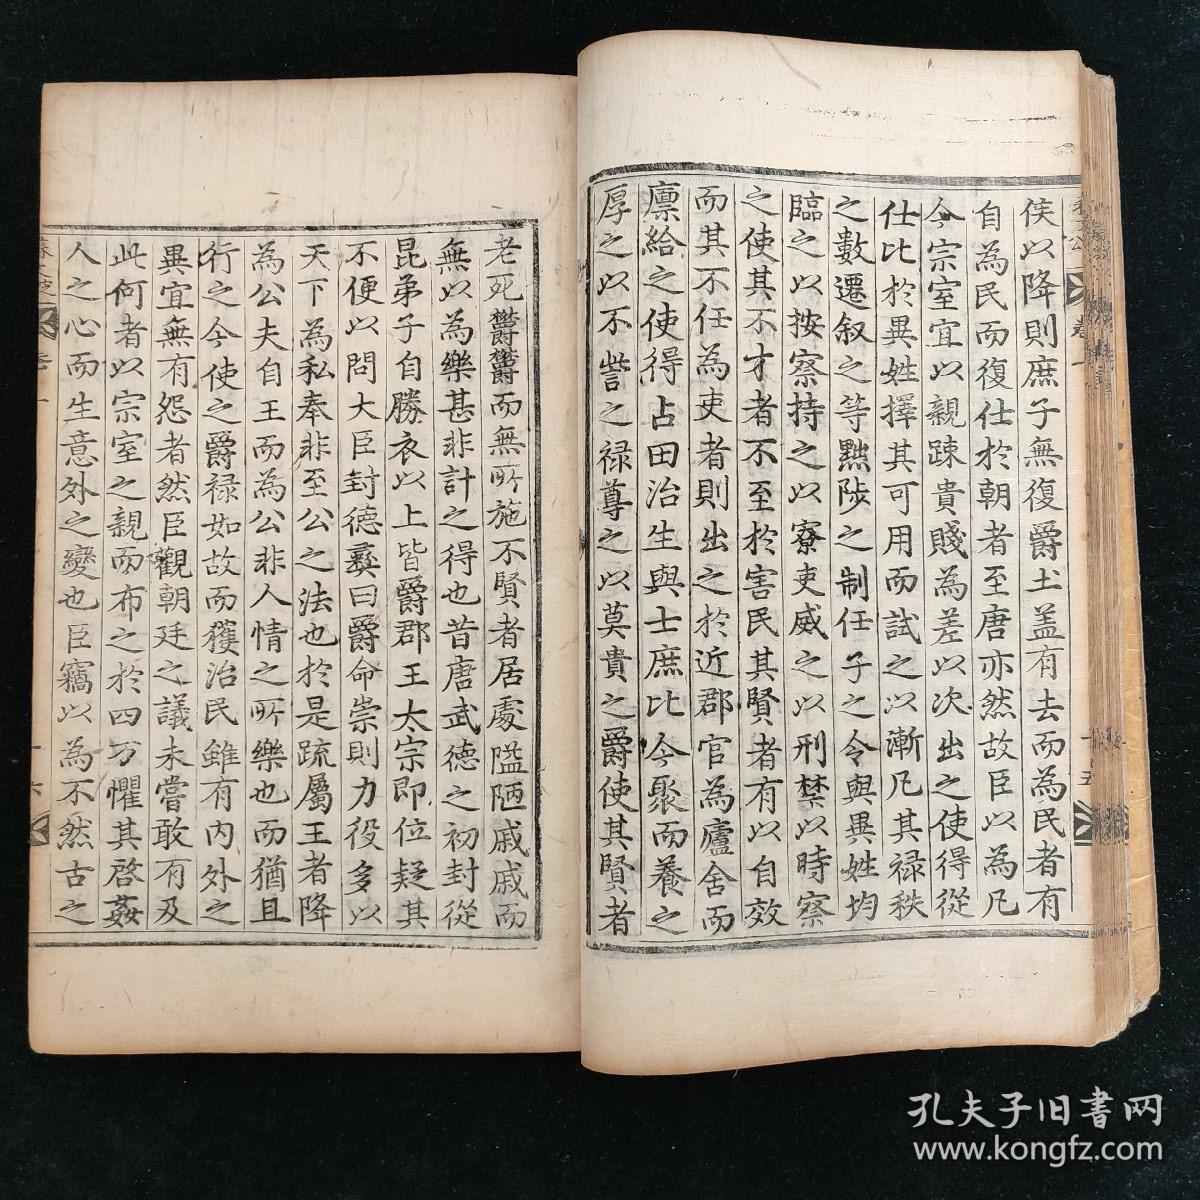 侯以降則庶子無復爵土盖有去而為民者有
自為民而復仕於朝者至唐亦然故臣以為凡
今宗室宜以親踈貴賤為差以次出之使得從
仕比於異姓擇其可用而試之以漸凡其禄秩
之數遷叙之等黜陟之制任子之令與異姓均
臨之以按察持之以寮吏威之以刑禁以時察
之使其不才者不至於害民其賢者有以自效
而其不任為吏者則出之於近郡官為廬舍而
廪給之使得占田治生與士庶比今聚而養之
厚之以不訾之禄尊之以莫貴之爵使其賢者
老死欝欝而無所施不賢者居處隘陋戚戚而
無以為樂甚非計之得也昔唐武德之初封從
昆弟子自勝衣以上皆爵郡王太宗即位疑其
不便以問大臣封德彝曰爵命崇則力役多以
天下為私奉非至公之法也於是疏屬王者降
為公夫自王而為公非人情之所樂也而猶且
行之今使之爵禄如故而獲治民雖有内外之
異宜無有怨者然臣觀朝廷之議未嘗敢有及
此何者以宗室之親而布之於四方懼其啓姦
人之心而生意外之變也臣竊以為不然古之
孔夫子旧书网
www.kongfz.com